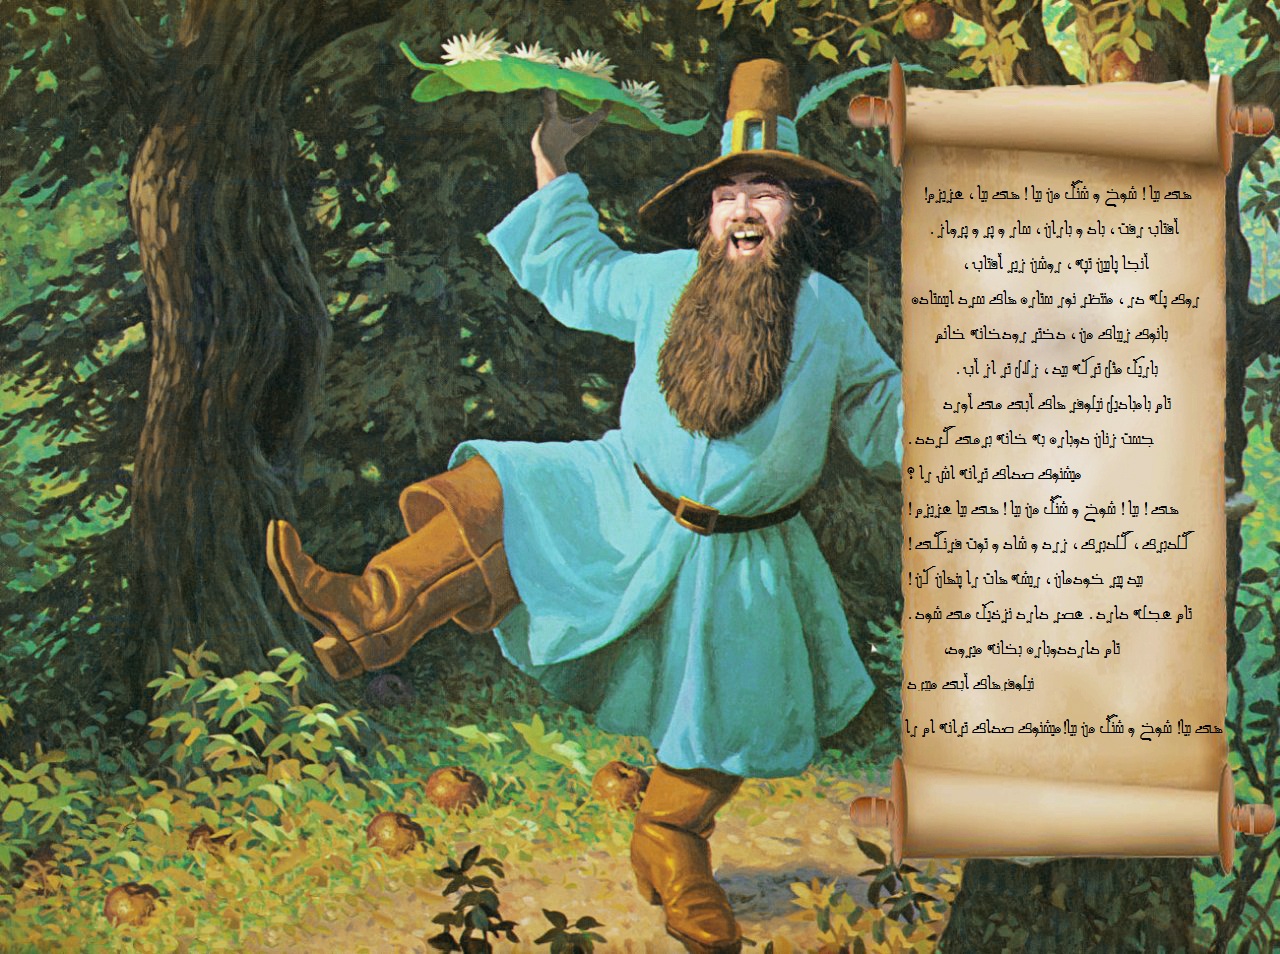 هی بیا ! شوخ و شنگ من بیا ! هی بیا ، عزیزم!
آفتاب رفت ، باد و باران ، سار و پر و پرواز .
آنجا پایین تپه ، روشن زیر آفتاب ،
روی پله در ، منتظر نور ستاره های سرد ایستاده
بانوی زیبای من ، دختر رودخانه خانم
باریک مثل ترکه بید ، زلال تر از آب .
تام بامبادیل نیلوفر های آبی می آورد
جست زنان دوباره به خانه برمی گردد.
میشنوی صدای ترانه اش را ؟
هی! بیا ! شوخ و شنگ من بیا ! هی بیا عزیزم !
گلدبری ، گلدبری ، زرد و شاد و توت فرنگی!
بید پیر خودمان ، ریشه هات را پنهان کن !
تام عجله دارد . عصر دارد نزدیک می شود.
تام دارددوباره بخانه میرود،
نیلوفرهای آبی میبرد
هی بیا! شوخ و شنگ من بیا!میشنوی صدای ترانه ام را